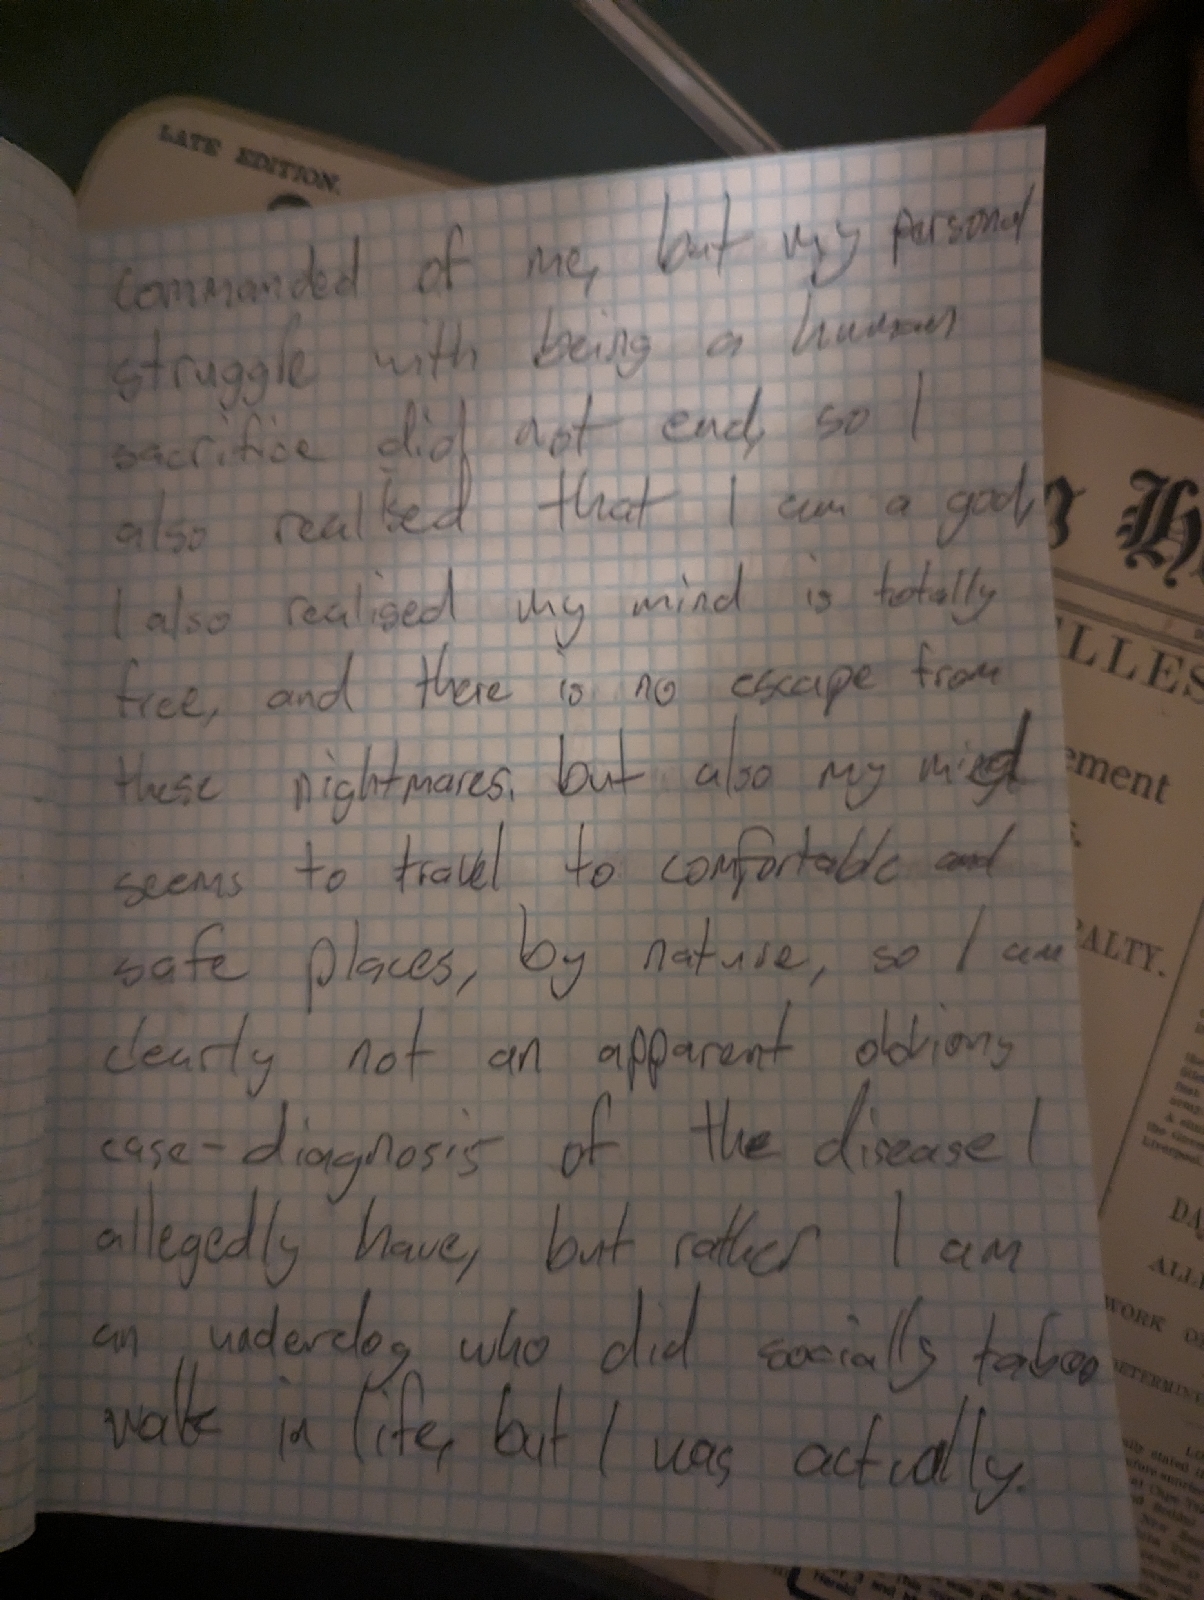 LATE EDITION.
commanded of me, but my personal
struggle with being a human
sacrifice did not end, so I
also realised that I am a god,
I also realised my mind is totally
free, and there is no escape from
these nightmares, but also my mind
seems to travel to comfortable and
safe places, by nature, so I am
clearly not an apparent
case-diagnosis of the disease I
allegedly have, but rather I am
an underdog who did socially taboo
walk in life, but I was actually.
H
LLES
ement
ALTY.
DA
ALLE
WORK
ETERMIN